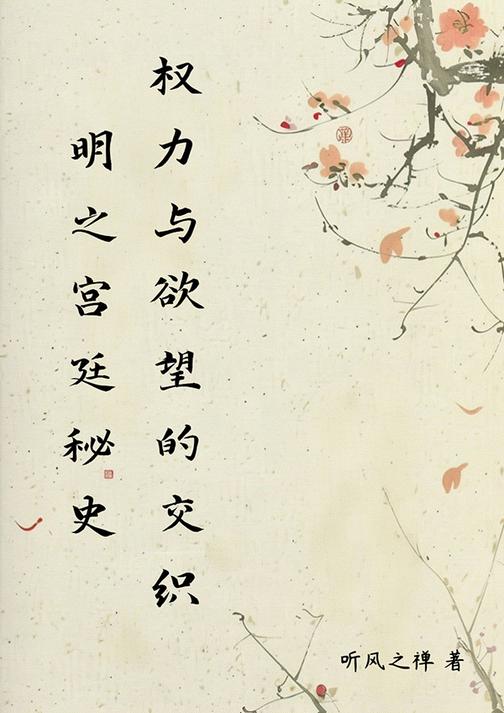 权力与欲望的交织
明之宫廷秘史
听风之禅 著